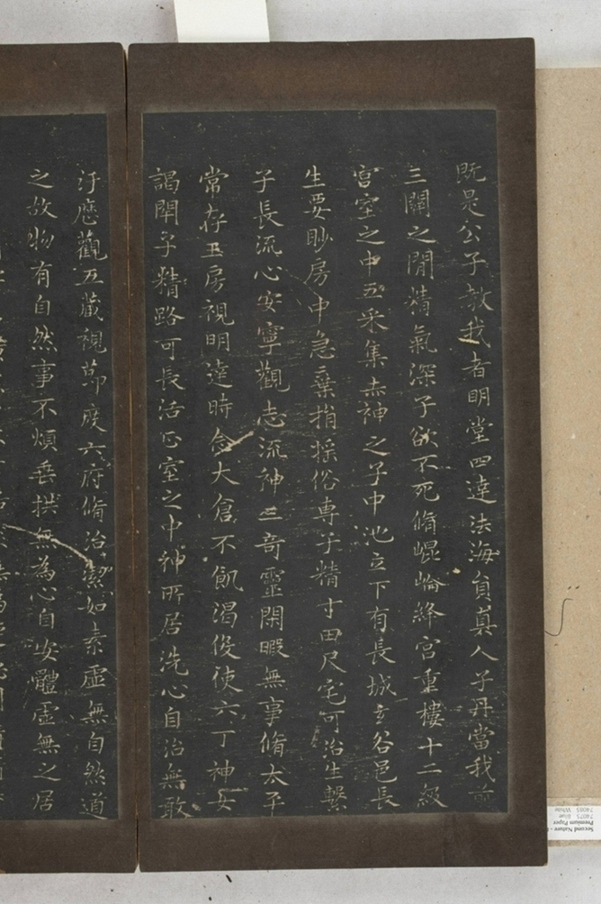 既是公子教我者明堂四達法海員真人子丹當我前
三關之閒精氣深子欲不死脩崐崘絳宮重樓十二級
宮室之中五采集赤神之子中池立下有長城玄谷邑長
生要眇房中急棄捐搖俗專子精寸田尺宅可治生繫
子長流心安寧觀志流神三奇靈閑暇無事脩太平
常存玉房視明達時念大倉不飢渴役使六丁神女
謁閉子精路可長活正室之中神所居洗心自治無敢
汙歷觀五藏視節度六府脩治潔如素虛無自然道
之故物有自然事不煩垂拱無為心自安體虛無之居
Second Nature
Premium Paper